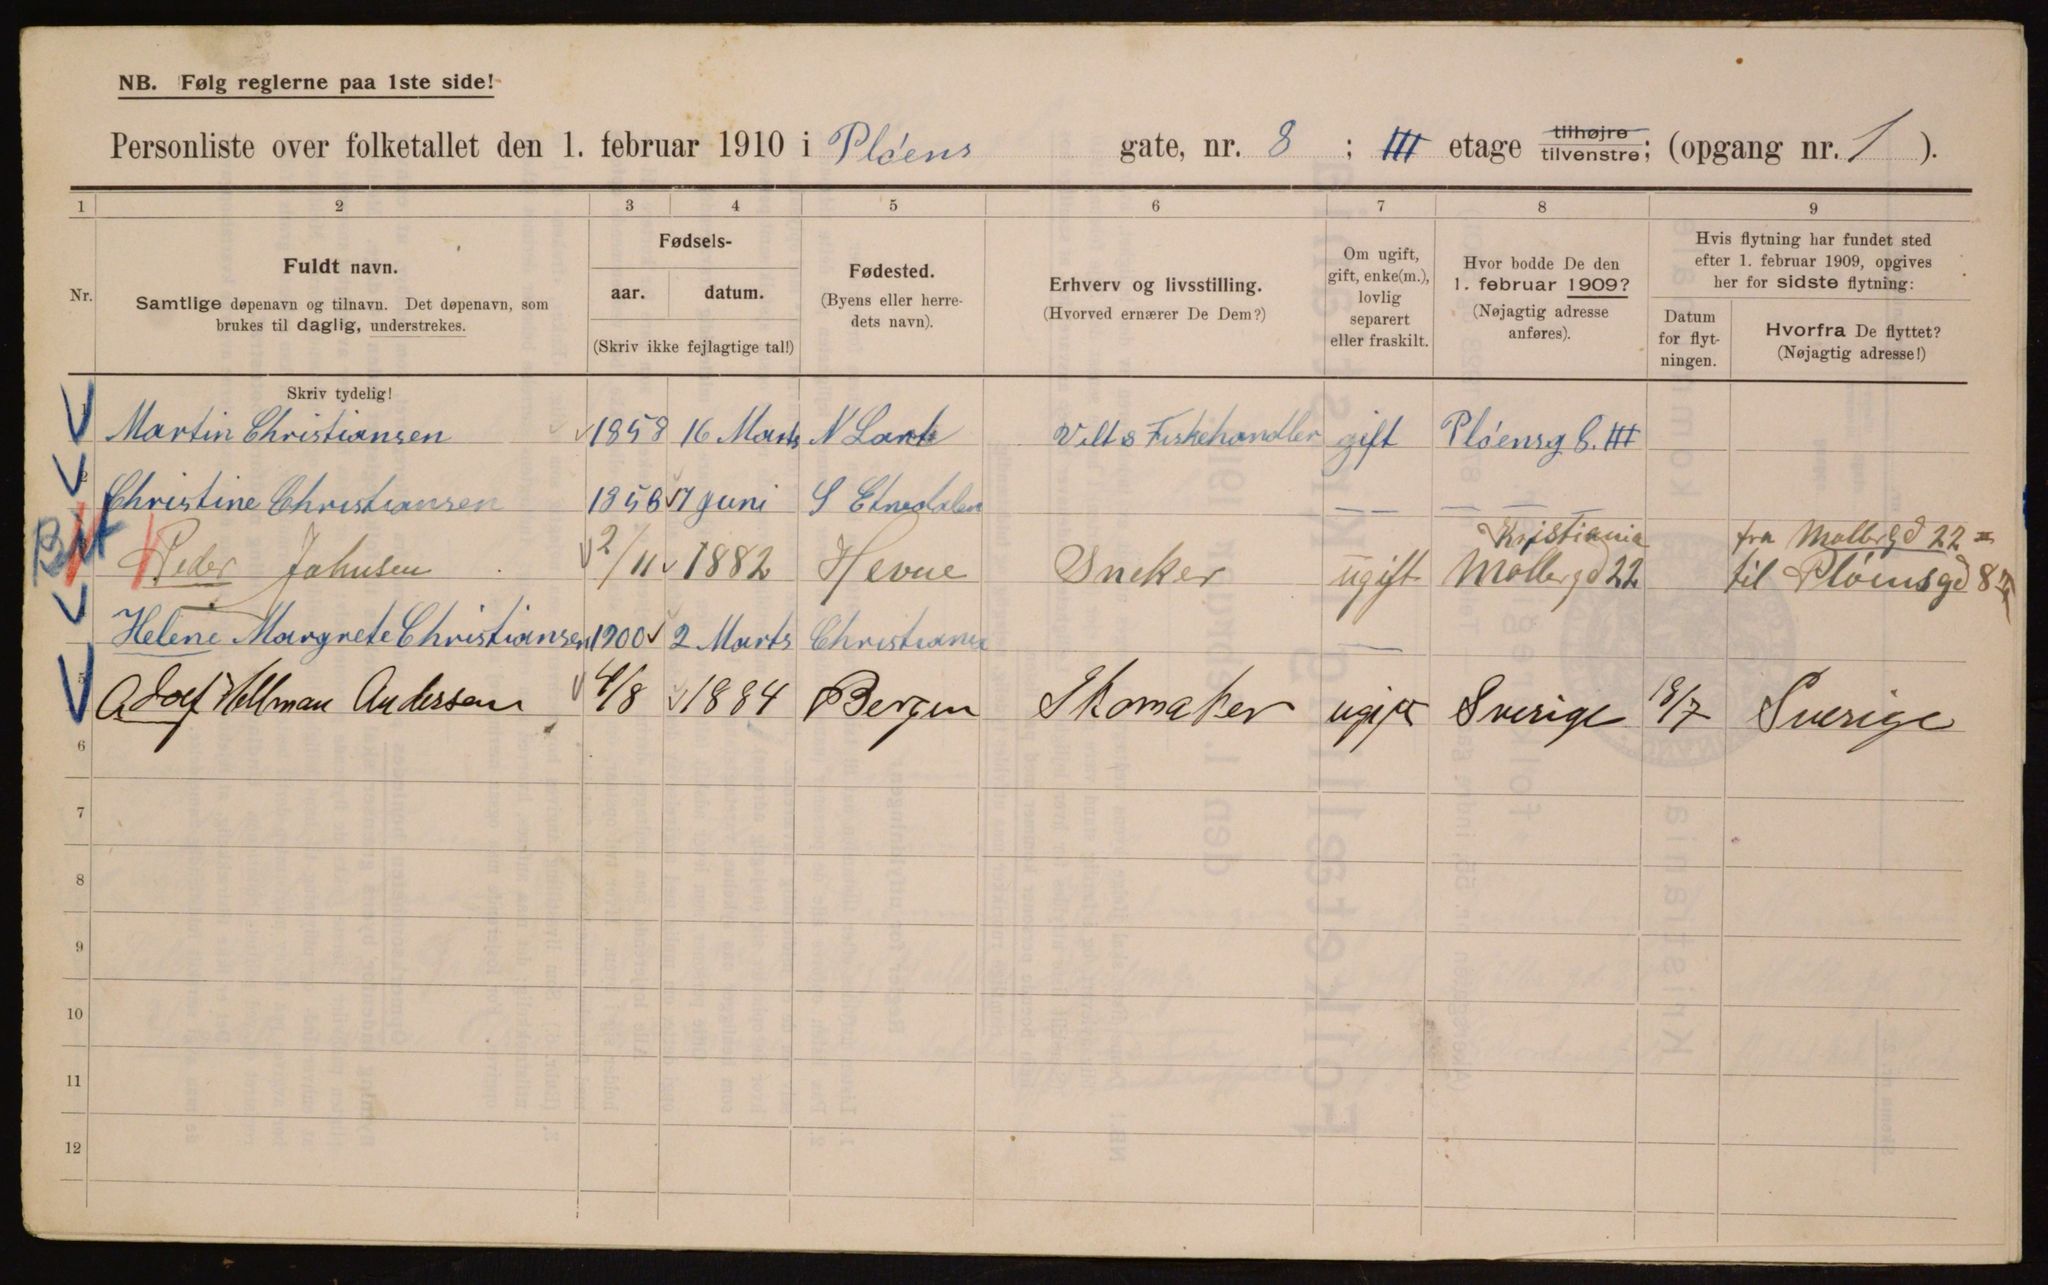 NB. Følg reglerne paa 1ste side!
Personliste over folketallet den 1. februar 1910 i Pløens gate, nr. 8; III etage tilhøjre tilvenstre; (opgang nr. 1).
1 2 3 4 5 6 7 8 9
Nr.
Fuldt navn.
Samtlige døpenavn og tilnavn. Det døpenavn, som
brukes til daglig, understrekes.
Skriv tydelig!
Fødsels-
aar. datum.
(Skriv ikke fejlagtige tal!)
Fødested.
(Byens eller herre-
dets navn).
Erhverv og livsstilling.
(Hvorved ernærer De Dem?)
Om ugift,
gift, enke(m.),
lovlig
separert
eller fraskilt.
Hvor bodde De den
1. februar 1909?
(Nøjagtig adresse
anføres).
Hvis flytning har fundet sted
efter 1. februar 1909, opgives
her for sidste flytning:
Datum
for flyt-
ningen.
Hvorfra De flyttet?
(Nøjagtig adresse!)
Martin Christiansen 1858 16 Marts N Land Vilt & Fiskehandler gift Pløensg 8. III
Christine Christiansen 1856 17 Juni S Etnedalen — — — —
Peder Johnsen 2/11 1882 Hevne Sneker ugift Kristiania Møllergd 22 fra Møllergd 22
til Pløensgd 8
Helene Margrete Christiansen 1900 2 Marts Christiania —
5 Adolf Hellman Andersen 4/8 1884 Bergen Skomaker ugift Sverige 18/7 Sverige
6
7
8
9
10
11
12